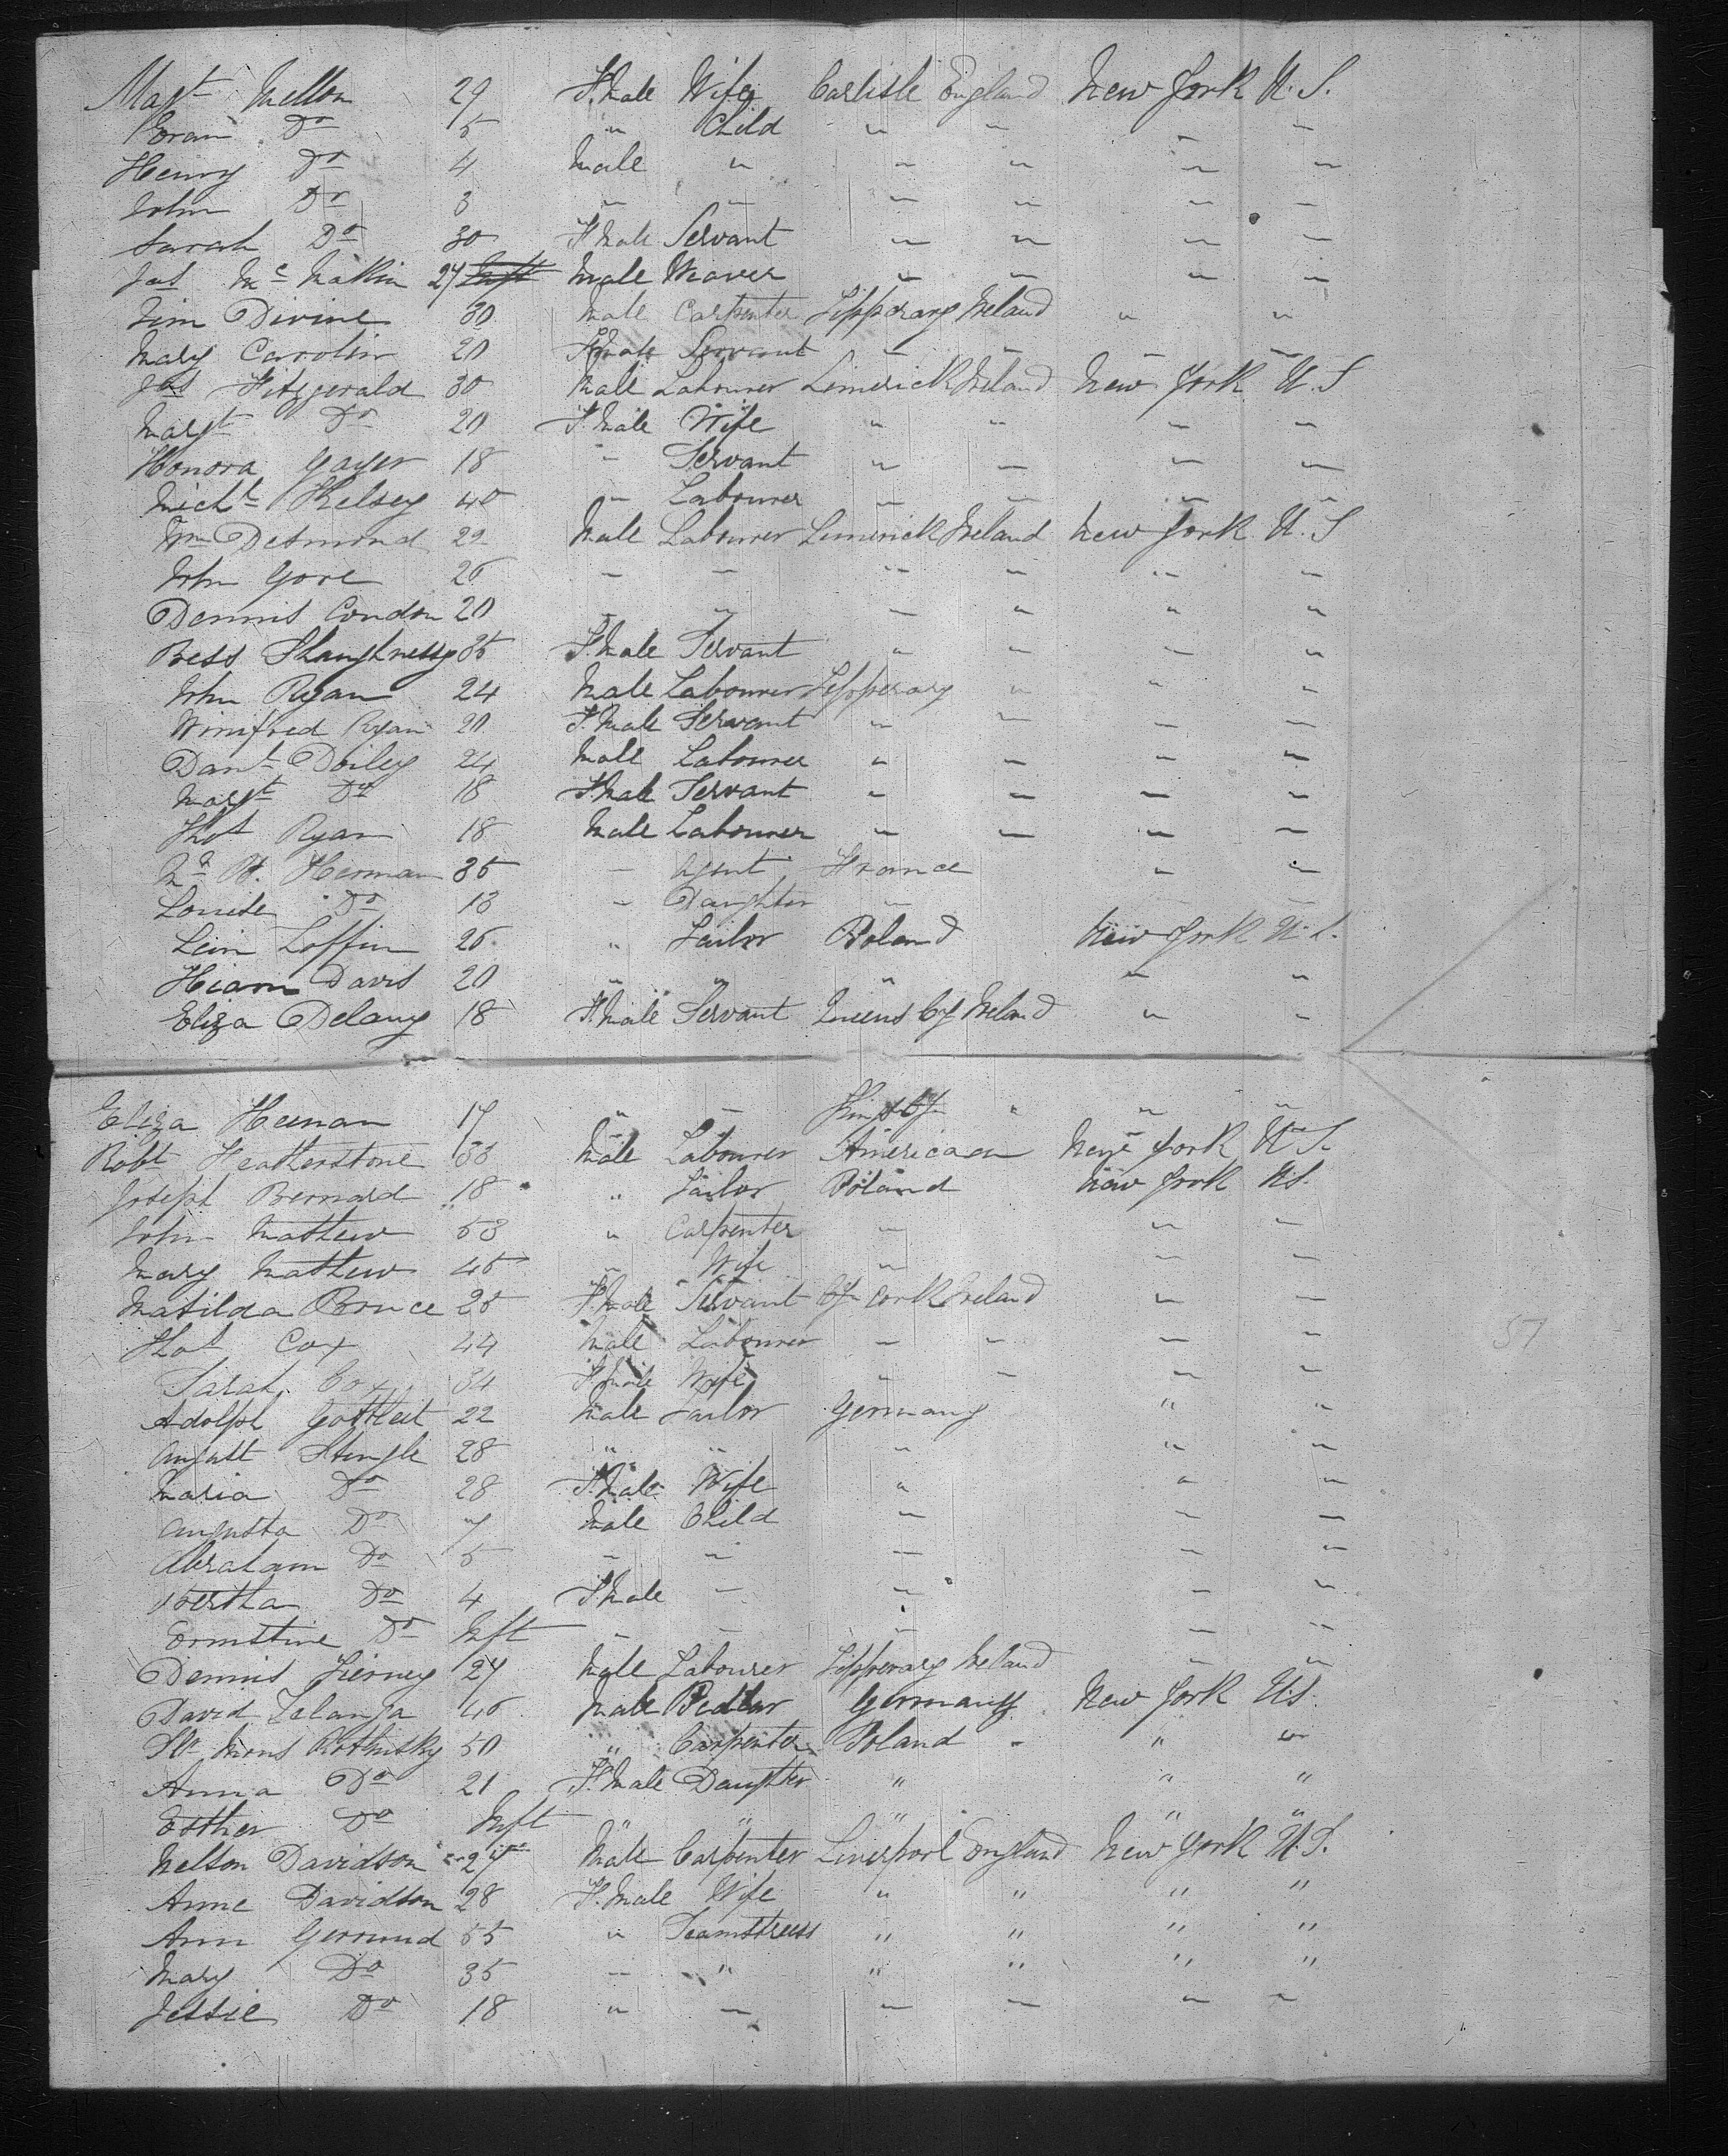 Margt Mellon 29 F.Male Wife Carlisle England New York U.S.
Do 5 " Child " " " "
Henry Do 4 Male " " " " "
John Do 3 " " " " " "
Sarah Do 30 F.Male Servant " " " "
Jas Mc Makin 27 Male Weaver " " " "
Jim Divine 30 Male Carpenter Tipperary Ireland " "
Mary Carolin 20 F.Male Servant " " " "
Jas Fitzgerald 30 Male Labourer Limerick Ireland New York U.S
Margt Do 20 F.Male Wife " " " "
Honora Gayer 18 " Servant " " " "
Michl Kelsey 40 " Labourer " " " "
Wm Desmond 22 Male Labourer Limerick Ireland New York U.S
John Gore 26 " " " " " "
Dennis Condon 20 " " " " " "
Bess Shaughnessy 35 F.Male Servant " " " "
John Ryan 24 Male Labourer Tipperary " " "
Winifred Ryan 20 F.Male Servant " " " "
Danl Doiley 24 Male Labourer " " " "
Margt Do 18 F.Male Servant " " " "
Thos Ryan 18 Male Labourer " " " "
H. Herman 35 " Agent France " "
Louise Do 13 " Daughter " " "
Loffin 26 " Tailor Poland New York U.S.
Hiam Davis 20 " " " " "
Eliza Delany 18 F.Male Servant Queens Cy Ireland " "
Eliza Heenan 17 " " Kings Cy " " "
Robt Heatherstone 33 Male Labourer American New York U.S.
Joseph Bernard 18 " Tailor Poland New York U.S.
John Mathew 53 " Carpenter " " "
Mary Mathew 45 " Wife " " "
Matilda Bruce 25 F.Male Servant Cy Cork Ireland " "
Thos Cox 44 Male Labourer " " " "
Sarah Cox 34 F.Male Wife " " " "
Adolph Gottleit 22 Male Tailor Germany " "
August Stengle 28 " " " " "
Maria Do 28 F.Male Wife " " "
Augusta Do 7 Male Child " " "
Abraham Do 5 " " " " "
Bertha Do 4 F.Male " " " "
Ernstine Do Inft " " " " "
Dennis Tierney 27 Male Labourer Tipperary Ireland " "
David Zelanga 46 Male Pedlar Germany New York U.S.
Rothinsky 50 " Carpenter Poland " " "
Anna Do 21 F.Male Daughter " " "
Esther Do Inft " " " " "
Nelson Davidson 27 Male Carpenter Liverpool England New York U.S.
Anne Davidson 28 F.Male Wife " " " "
Ann Gerround 55 " Seamstress " " " "
Mary Do 35 " " " " " "
Jessie Do 18 " " " " " "
57